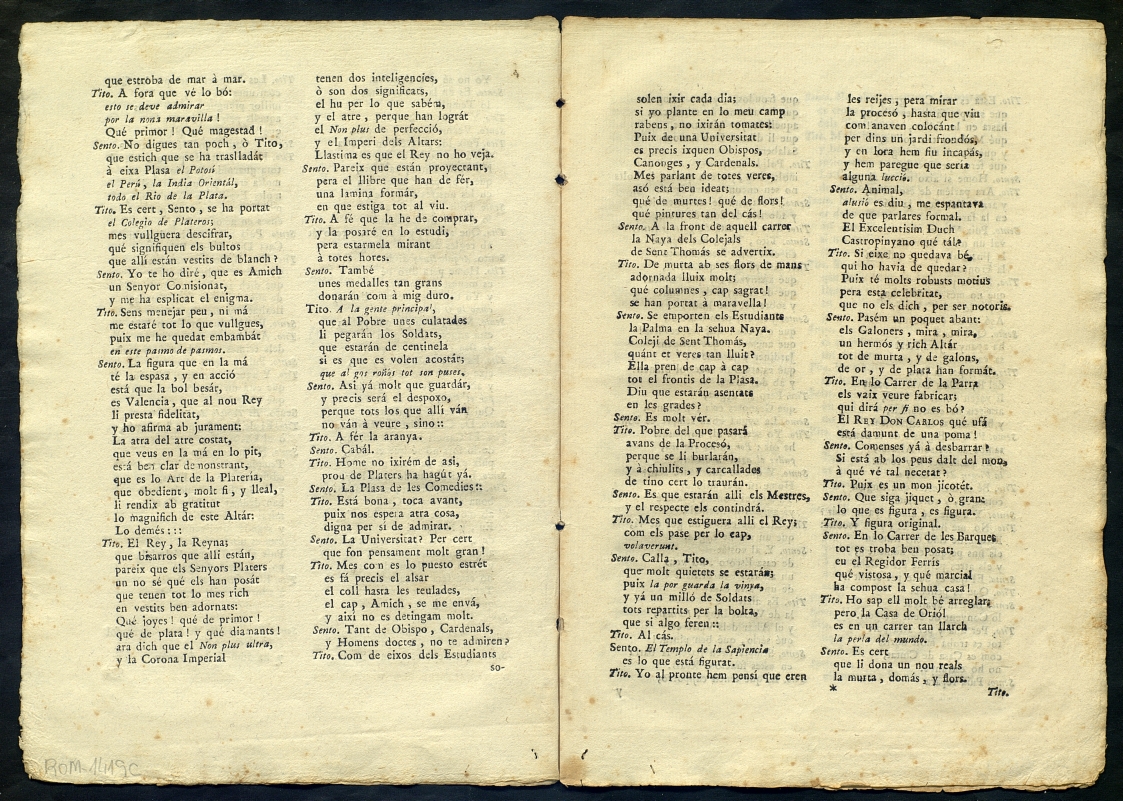 que estroba de mar à mar.
Tito. A fora que vé lo bó:
esto se deve admirar
por la nona maravilla!
Qué primor! Qué magestad!
Sento. No digues tan poch, ò Tito,
que estich que se ha traslladát
à eixa Plasa el Potosí
el Perú, la India Orientál,
todo el Rio de la Plata.
Tito. Es cert, Sento, se ha portat
el Colegio de Plateros;
mes vullguera descifrar,
qué signifiquen els bultos
que allí están vestits de blanch?
Sento. Yo te ho diré, que es Amich
un Senyor Comisionat,
y me ha esplicat el enigma.
Tito. Sens menejar peu, ni má
me estaré tot lo que vullgues,
puix me he quedat embambát
en este pasmo de pasmos.
Sento. La figura que en la má
té la espasa, y en acció
está que la bol besár,
es Valencia, que al nou Rey
li presta fidelitat,
y ho afirma ab jurament:
La atra del atre costat,
que veus en la má en lo pit,
está ben clar demonstrant,
que es lo Art de la Plateria,
que obedient, molt fi, y lleal,
li rendix ab gratitut
lo magnifich de este Altár:
Lo demés:::
Tito. El Rey, la Reyna;
que bisarros que allí están,
pareix que els Senyors Platers
un no sé qué els han posát
que tenen tot lo mes rich
en vestits ben adornats:
Qué joyes! qué de primor!
qué de plata! y qué diamants!
ara dich que el Non plus ultra,
y la Corona Imperial
tenen dos inteligencies,
ò son dos significats,
el hu per lo que sabém,
y el atre, perque han lográt
el Non plus de perfecció,
y el Imperi dels Altars:
Llastima es que el Rey no ho veja.
Sento. Pareix que están proyectant,
pera el llibre que han de fér,
una lamina formár,
en que estiga tot al viu.
Tito. A fé que la he de comprar,
y la posaré en lo estudi,
pera estarmela mirant
à totes hores.
Sento. També
unes medalles tan grans
donarán com à mig duro.
Tito. A la gente principal,
que al Pobre unes culatades
li pegarán los Soldats,
que estarán de centinela
si es que es volen acostár;
que al gos roños tot son puses.
Sento. Asi yá molt que guardár,
y precis será el despoxo,
perque tots los que allí ván
no ván à veure, sino::
Tito. A fér la aranya.
Sento. Cabál.
Tito. Home no ixirém de asi,
prou de Platers ha hagút yá.
Sento. La Plasa de les Comedies::
Tito. Está bona, toca avant,
puix nos espera atra cosa,
digna per si de admirar.
Sento. La Universitat? Per cert
que fon pensament molt gran!
Tito. Mes com es lo puesto estrét
es fá precis el alsar
el coll hasta les teulades,
el cap, Amich, se me envá,
y aixi no es detingam molt.
Sento. Tant de Obispo, Cardenals,
y Homens doctes, no te admiren?
Tito. Com de eixos dels Estudiants
so-
solen ixir cada dia;
si yo plante en lo meu camp
rabens, no ixirán tomates:
Puix de una Universitat
es precis ixquen Obispos,
Canonges, y Cardenals.
Mes parlant de totes veres,
asó está ben ideat;
qué de murtes! qué de flors!
qué pintures tan del cás!
Sento. A la front de aquell carrer
la Naya dels Colejals
de Sent Thomás se advertix.
Tito. De murta ab ses flors de mans
adornada lluix molt;
qué columnes, cap sagrat!
se han portat à maravella!
Sento. Se emporten els Estudiants
la Palma en la sehua Naya.
Coleji de Sent Thomás,
quánt et veres tan lluit?
Ella pren de cap à cap
tot el frontis de la Plasa.
Diu que estarán asentats
en les grades?
Sento. Es molt vér.
Tito. Pobre del que pasará
avans de la Procesó,
perque se li burlarán,
y à chiulits, y carcallades
de tino cert lo traurán.
Sento. Es que estarán alli els Mestres,
y el respecte els contindrá.
Tito. Mes que estiguera alli el Rey;
com els pase per lo cap,
volaverunt.
Sento. Calla, Tito,
que molt quietets se estarán;
puix la por guarda la vinya,
y yá un milló de Soldats
tots repartits per la bolta,
que si algo feren::
Tito. Al cás.
Sento. El Templo de la Sapiencia
es lo que está figurat.
Tito. Yo al pronte hem pensi que eren
les reijes, pera mirar
la procesó, hasta que viu
com anaven colocánt
per dins un jardi frondós,
y en lora hem fiu incapás,
y hem paregue que seria
alguna lucció.
Sento. Animal,
alusió es diu, me espantava
de que parlares formal.
El Excelentisim Duch
Castropinyano qué tál?
Tito. Si eixe no quedava bé,
qui ho havia de quedar?
Puix té molts robusts motius
pera esta celebritat,
que no els dich, per ser notoris.
Sento. Pasém un poquet abant:
els Galoners, mira, mira,
un hermós y rich Altár
tot de murta, y de galons,
de or, y de plata han formát.
Tito. En lo Carrer de la Parra
els vaix veure fabricar;
qui dirá per fi no es bó?
El REY DON CARLOS qué ufá
está damunt de una poma!
Sento. Comenses yá à desbarrar?
Si está ab los peus dalt del mon,
à qué vé tal necetat?
Tito. Puix es un mon jicotét.
Sento. Que siga jiquet, ò gran:
lo que es figura, es figura.
Tito. Y figura original.
Sento. En lo Carrer de les Barques
tot es troba ben posat;
eu el Regidor Ferris
qué vistosa, y qué marcial
ha compost la sehua casa!
Tito. Ho sap ell molt bé arreglar;
pero la Casa de Oriól
es en un carrer tan llarch
la perla del mundo.
Sento. Es cert
que li dona un nou reals
la murta, domás, y flors.
* Tito.
BOM-1419C